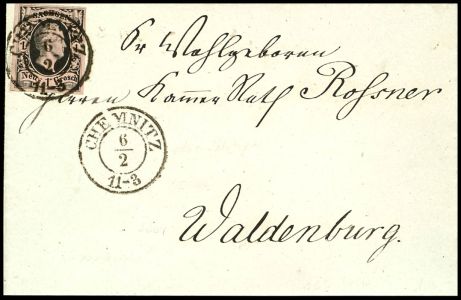 SACHSEN
CHEMNITZ
6
2
11-3
Neu 1 Grosch
Sr Wohlgeboren
Herren Kammer Rath Rossner
CHEMNITZ
6
2
11-3
Waldenburg.